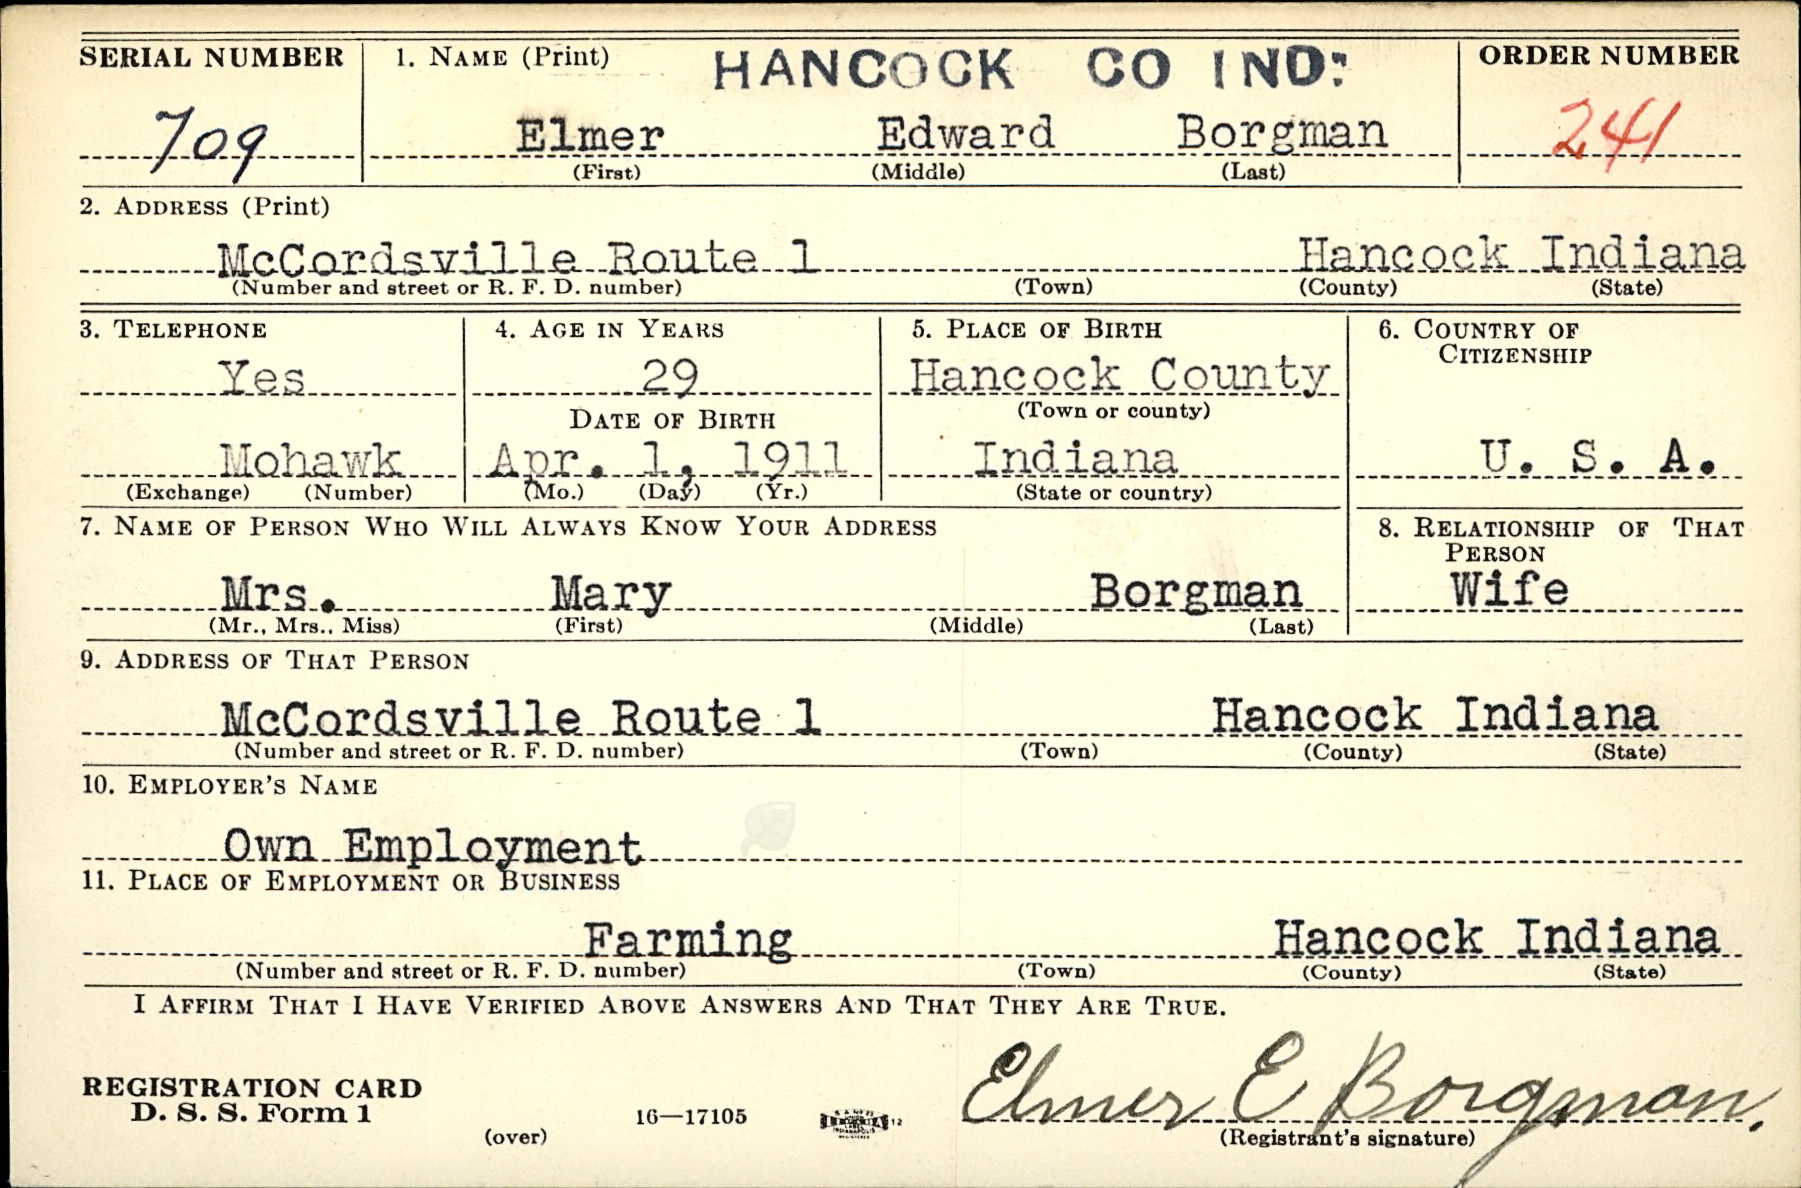 SERIAL NUMBER 1. NAME (Print) HANCOCK CO IND: ORDER NUMBER
709 Elmer Edward Borgman 241
(First) (Middle) (Last)
2. ADDRESS (Print)
McCordsville Route 1 Hancock Indiana
(Number and street or R. F. D. number) (Town) (County) (State)
3. TELEPHONE 4. AGE IN YEARS 5. PLACE OF BIRTH 6. COUNTRY OF
CITIZENSHIP
Yes 29 Hancock County
DATE OF BIRTH (Town or county)
Mohawk Apr. 1, 1911 Indiana U. S. A.
(Exchange) (Number) (Mo.) (Day) (Yr.) (State or country)
7. NAME OF PERSON WHO WILL ALWAYS KNOW YOUR ADDRESS 8. RELATIONSHIP OF THAT
PERSON
Mrs. Mary Borgman Wife
(Mr., Mrs., Miss) (First) (Middle) (Last)
9. ADDRESS OF THAT PERSON
McCordsville Route 1 Hancock Indiana
(Number and street or R. F. D. number) (Town) (County) (State)
10. EMPLOYER'S NAME
Own Employment
11. PLACE OF EMPLOYMENT OR BUSINESS
Farming Hancock Indiana
(Number and street or R. F. D. number) (Town) (County) (State)
I AFFIRM THAT I HAVE VERIFIED ABOVE ANSWERS AND THAT THEY ARE TRUE.
REGISTRATION CARD Elmer E Borgman.
D. S. S. Form 1 16—17105 12
(over) (Registrant's signature)